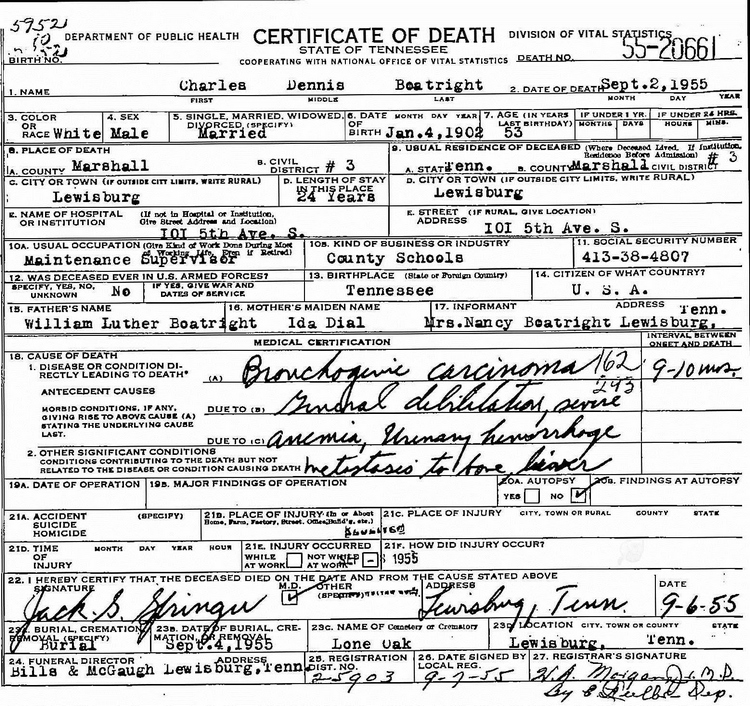 5952
DEPARTMENT OF PUBLIC HEALTH CERTIFICATE OF DEATH DIVISION OF VITAL STATISTICS
STATE OF TENNESSEE
BIRTH NO. COOPERATING WITH NATIONAL OFFICE OF VITAL STATISTICS DEATH NO. 55-20661
1. NAME Charles Dennis Boatright 2. DATE OF DEATH Sept.2,1955
FIRST MIDDLE LAST MONTH DAY YEAR
3. COLOR OR RACE White 4. SEX Male 5. SINGLE, MARRIED, WIDOWED, DIVORCED, (SPECIFY) Married 6. DATE OF BIRTH MONTH DAY YEAR Jan.4,1902 7. AGE (IN YEARS LAST BIRTHDAY) 53 IF UNDER 1 YR. MONTHS DAYS IF UNDER 24 HRS. HOURS MINS.
8. PLACE OF DEATH 9. USUAL RESIDENCE OF DECEASED (Where Deceased Lived. If Institution, Residence Before Admission)
A. COUNTY Marshall B. CIVIL DISTRICT # 3 A. STATE Tenn. B. COUNTY Marshall CIVIL DISTRICT # 3
C. CITY OR TOWN (IF OUTSIDE CITY LIMITS, WRITE RURAL) Lewisburg D. LENGTH OF STAY IN THIS PLACE 24 Years D. CITY OR TOWN (IF OUTSIDE CITY LIMITS, WRITE RURAL) Lewisburg
E. NAME OF HOSPITAL OR INSTITUTION (If not in Hospital or Institution, Give Street Address and Location) IOI 5th Ave. S. E. STREET ADDRESS (IF RURAL, GIVE LOCATION) IOI 5th Ave. S.
10A. USUAL OCCUPATION (Give Kind of Work Done During Most of Working Life, Even if Retired) Maintenance Supervisor 10B. KIND OF BUSINESS OR INDUSTRY County Schools 11. SOCIAL SECURITY NUMBER 413-38-4807
12. WAS DECEASED EVER IN U.S. ARMED FORCES? SPECIFY, YES, NO, UNKNOWN No IF YES, GIVE WAR AND DATES OF SERVICE 13. BIRTHPLACE (State or Foreign Country) Tennessee 14. CITIZEN OF WHAT COUNTRY? U. S. A.
15. FATHER'S NAME William Luther Boatright 16. MOTHER'S MAIDEN NAME Ida Dial 17. INFORMANT ADDRESS Mrs.Nancy Boatright Lewisburg, Tenn.
MEDICAL CERTIFICATION INTERVAL BETWEEN ONSET AND DEATH
18. CAUSE OF DEATH
1. DISEASE OR CONDITION DIRECTLY LEADING TO DEATH* (A) Bronchogenic carcinoma 162 9-10 mos.
ANTECEDENT CAUSES 293
MORBID CONDITIONS, IF ANY, GIVING RISE TO ABOVE CAUSE (A) STATING THE UNDERLYING CAUSE LAST. DUE TO (B) General debilitation, severe
DUE TO (C) anemia, Urinary hemorrhage
2. OTHER SIGNIFICANT CONDITIONS CONDITIONS CONTRIBUTING TO THE DEATH BUT NOT RELATED TO THE DISEASE OR CONDITION CAUSING DEATH metastasis to bone,
19A. DATE OF OPERATION 19B. MAJOR FINDINGS OF OPERATION 20A. AUTOPSY YES NO 20B. FINDINGS AT AUTOPSY
21A. ACCIDENT SUICIDE HOMICIDE (SPECIFY) 21B. PLACE OF INJURY (In or About Home, Farm, Factory, Street, Office, Build'g, etc.) 21C. PLACE OF INJURY CITY, TOWN OR RURAL COUNTY STATE
21D. TIME OF INJURY MONTH DAY YEAR HOUR 21E. INJURY OCCURRED WHILE AT WORK NOT WHILE AT WORK 21F. HOW DID INJURY OCCUR? 1955
22. I HEREBY CERTIFY THAT THE DECEASED DIED ON THE DATE AND FROM THE CAUSE STATED ABOVE
SIGNATURE Jack S. Springer M.D. OTHER (SPECIFY) ADDRESS Lewisburg, Tenn. DATE 9-6-55
23A. BURIAL, CREMATION, REMOVAL (SPECIFY) Burial 23B. DATE OF BURIAL, CREMATION, OR REMOVAL Sept.4,1955 23C. NAME OF Cemetery or Crematory Lone Oak 23D. LOCATION CITY, TOWN OR COUNTY STATE Lewisburg, Tenn.
24. FUNERAL DIRECTOR ADDRESS Bills & McGaugh Lewisburg,Tenn 25. REGISTRATION DIST. NO. 25903 26. DATE SIGNED BY LOCAL REG. 9-7-55 27. REGISTRAR'S SIGNATURE Morgan Jr. M.D.
By Dep.